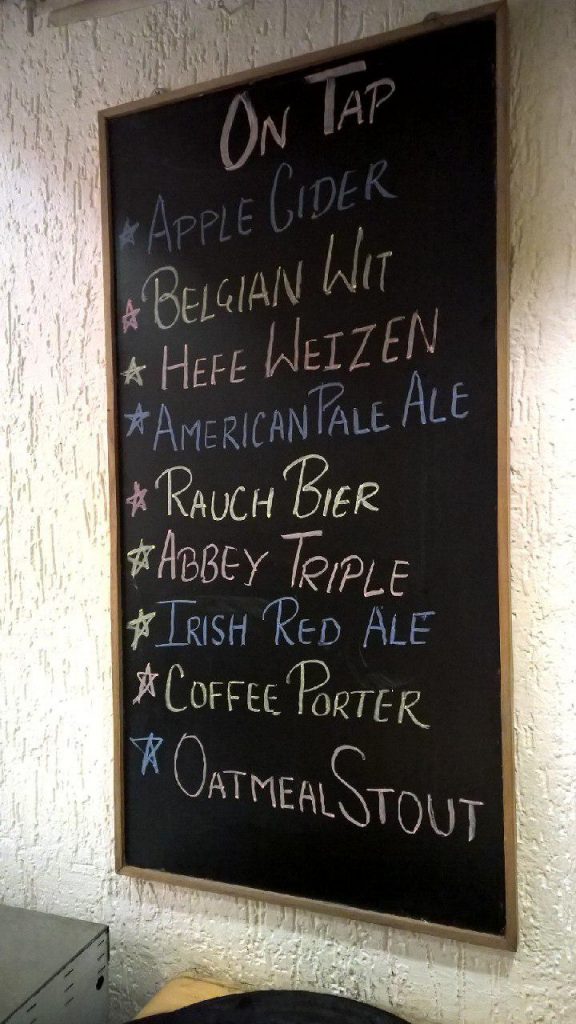 On Tap
Apple Cider
Belgian Wit
Hefe Weizen
American Pale Ale
Rauch Bier
Abbey Triple
Irish Red Ale
Coffee Porter
Oatmeal Stout